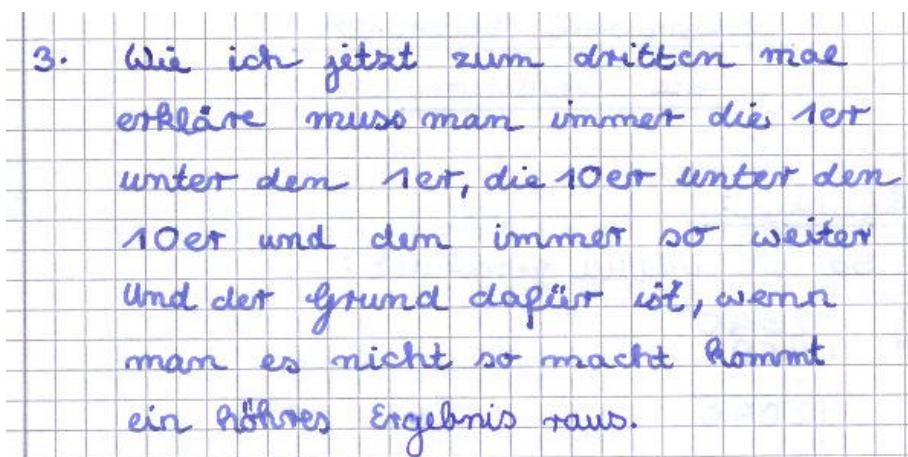 3. Wie ich jetzt zum dritten mal
erkläre muss man immer die 1er
unter den 1er, die 10er unter den
10er und den immer so weiter
Und der Grund dafür ist, wenn
man es nicht so macht kommt
ein höhres Ergebnis raus.